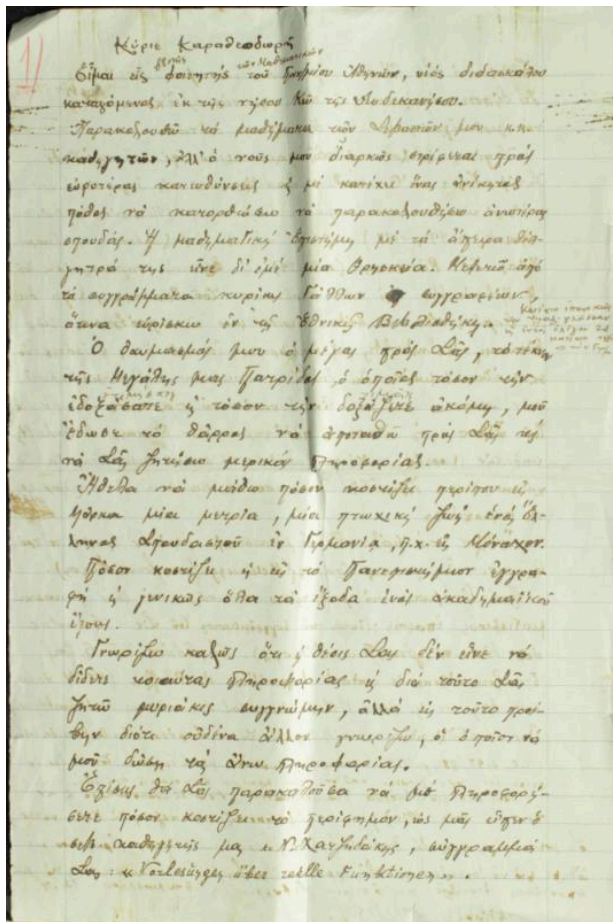 1)
Κύριε Καραθεοδωρῆ
Εἶμαι εἷς φοιτητής τῶν Μαθηματικῶν τοῦ Πανεπ/μίου Ἀθηνῶν, υἱός διδασκάλου
καταγόμενος ἐκ τῆς νήσου Κῶ τῆς Δωδεκανήσου.
Παρακολουθῶ τά μαθήματα τῶν Σεβαστῶν μου κ.κ.
καθηγητῶν, ἀλλ' ὁ νοῦς μου διαρκῶς στρέφεται πρός
εὐρυτέρας κατευθύνσεις καί μέ κατέχει ἕνας ἀνίκητος
πόθος νά κατορθώσω νά παρακολουθήσω ἀνωτέρας
σπουδάς. Ἡ μαθηματική Ἐπιστήμη μέ τά ἄπειρα θέλ-
γητρά της εἶνε δι' ἐμέ μία θρησκεία. Μελετῶ ἀπό
τά συγγράμματα κυρίως Γάλλων συγγραφέων,
ἅτινα εὑρίσκω ἐν τῇ Ἐθνικῇ Βιβλιοθήκῃ.
Ὁ θαυμασμός μου ὁ μέγας πρός Σᾶς, τό τέκνον
τῆς Μεγάλης μας Πατρίδος, ὁ ὁποῖος τόσον τήν
ἐδοξάσατε καί τόσον τήν δοξάζετε ἀκόμη, μοῦ
ἔδωσε τό θάρρος νά ἀποταθῶ πρός Σᾶς καί
νά Σᾶς ζητήσω μερικάς πληροφορίας.
Ἤθελα νά μάθω πόσον κοστίζει περίπου εἰς
Μάρκα μία μετρία, μία πτωχική ζωή ἑνός Ἕλ-
ληνος Σπουδαστοῦ ἐν Γερμανίᾳ, π.χ. εἰς Μόναχον.
Πόσον κοστίζει ἡ εἰς τό Πανεπιστήμιον ἐγγρα-
φή καί γενικῶς ὅλα τά ἔξοδα ἑνός ἀκαδημαϊκοῦ
ἔτους.
Γνωρίζω καλῶς ὅτι ἡ θέσις Σας δέν εἶνε νά
δίδετε τοιαύτας πληροφορίας καί διά τοῦτο Σᾶς
ζητῶ μυριάκις συγγνώμην, ἀλλά εἰς τοῦτο προέ-
βην διότι οὐδένα ἄλλον γνωρίζω, ὁ ὁποῖος νά
μοῦ δώσῃ τάς ἄνω πληροφορίας.
Ἐπίσης θά Σᾶς παρακαλοῦσα νά μέ πληροφορή-
σετε πόσον κοστίζει τό περίφημον, ὡς μᾶς εἶπεν ὁ
σεβ. καθηγητής μας κ. Ν. Χατζιδάκης, σύγγραμμά
Σας: "Vorlesungen über reelle Funktionen".